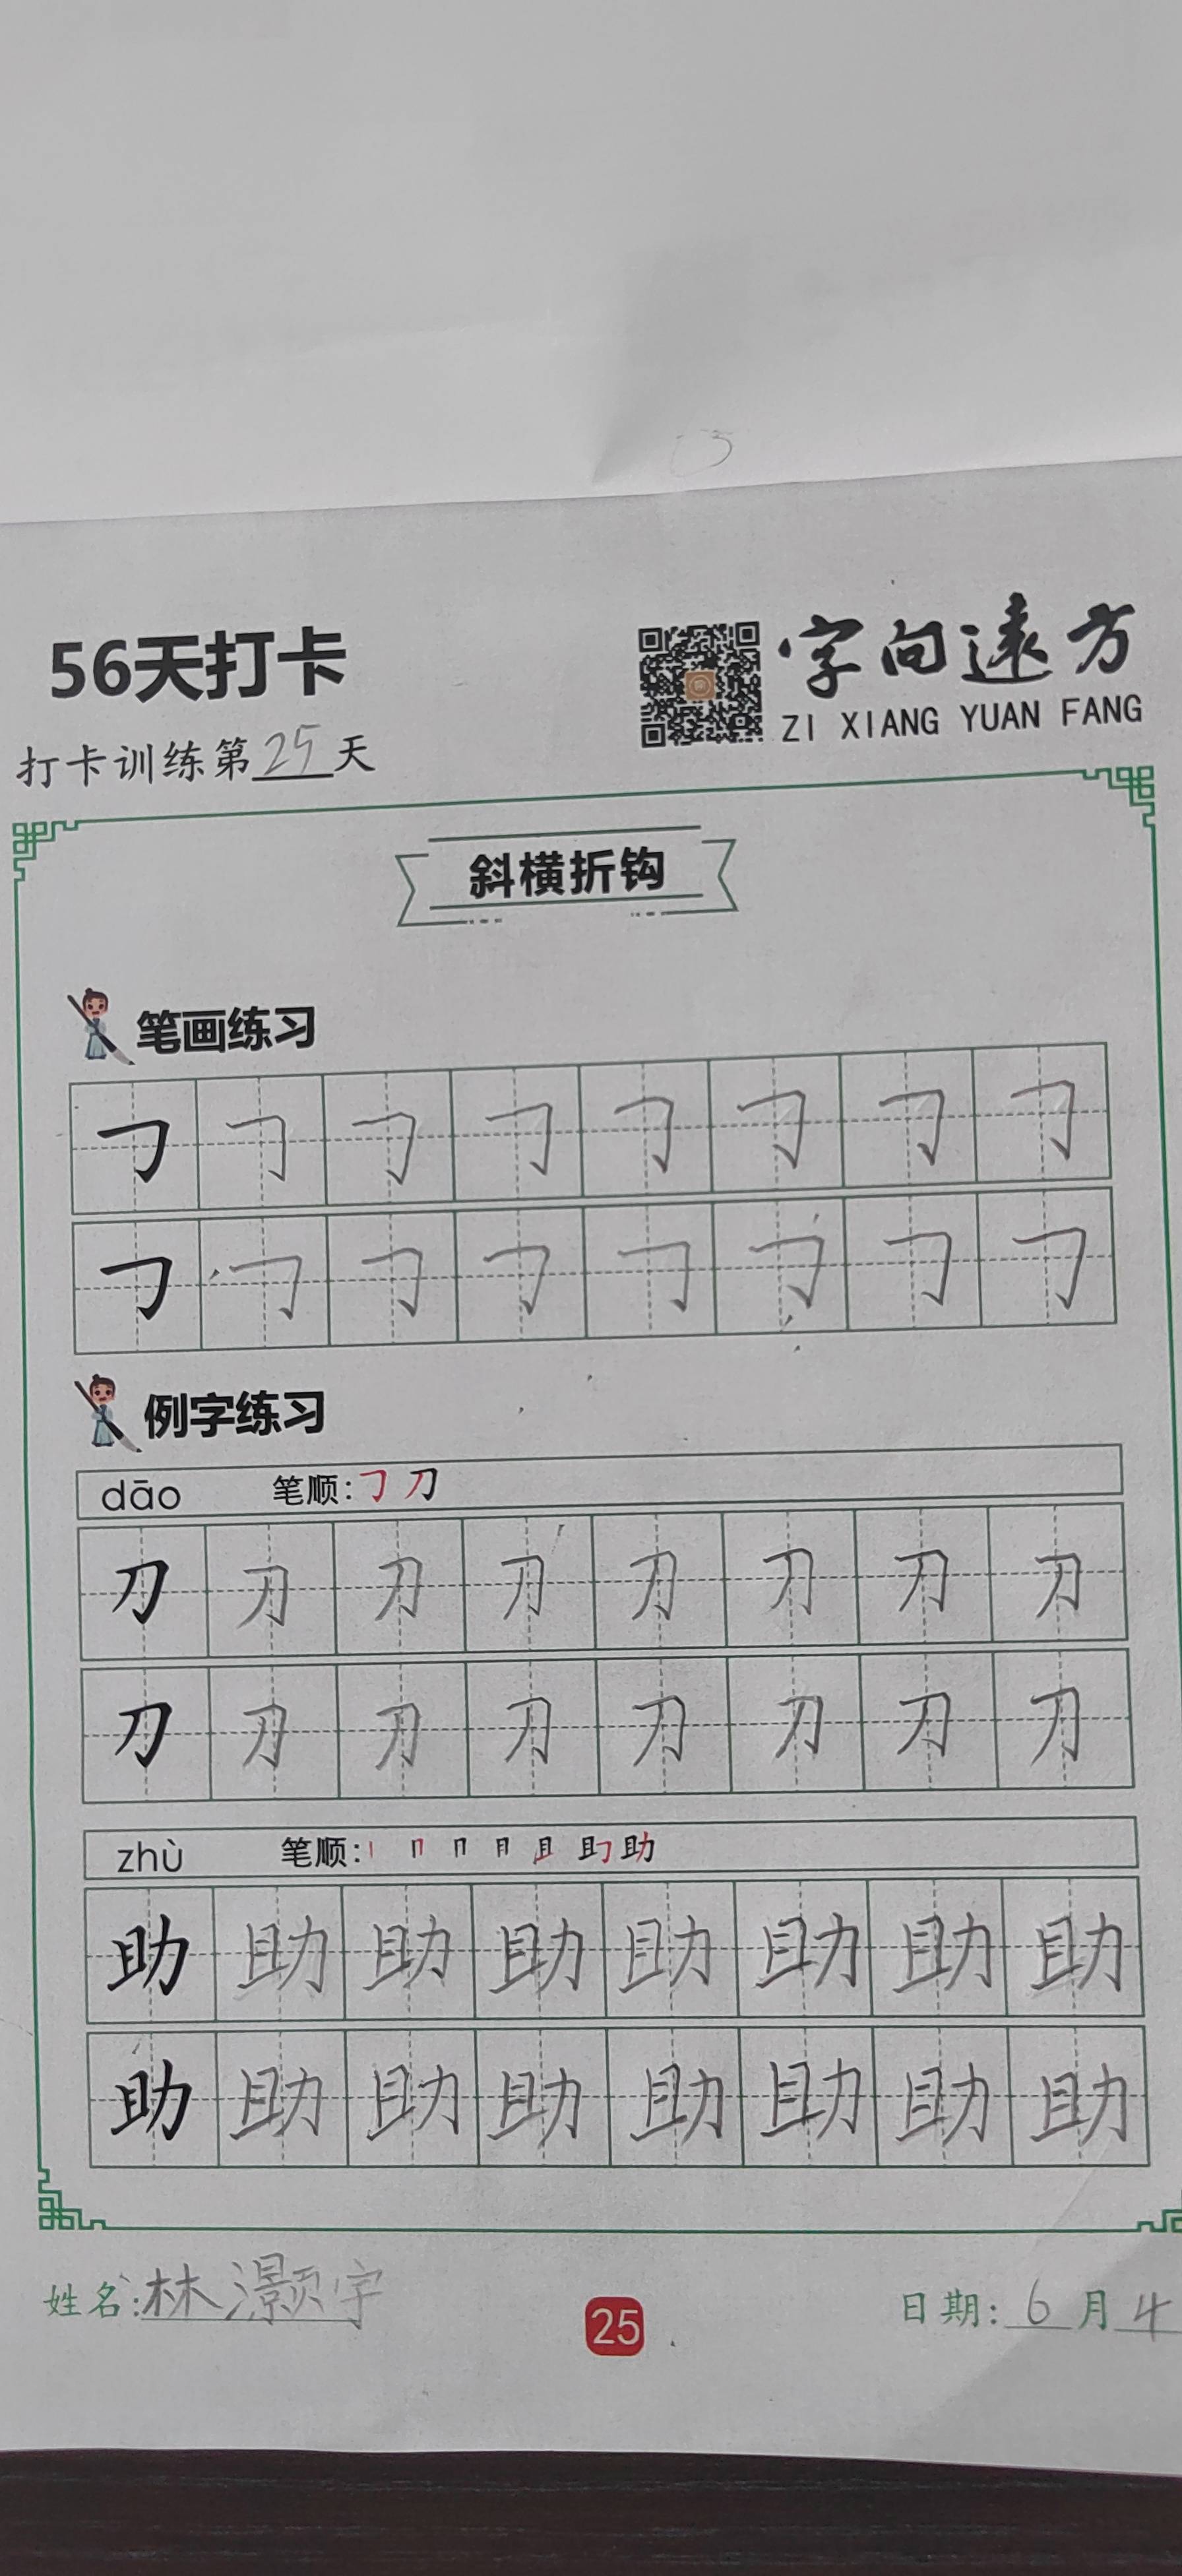 56天打卡
字向遠方
ZI XIANG YUAN FANG
打卡训练第25天
斜横折钩
笔画练习
例字练习
dāo 笔顺: 𠃌 刀
刀 刀 刀 刀 刀 刀 刀 刀
刀 刀 刀 刀 刀 刀 刀 刀
zhù 笔顺: 丨 冂 冂 月 且 助
助 助 助 助 助 助 助 助
助 助 助 助 助 助 助 助
姓名: 林灏宇
25
日期: 6月4